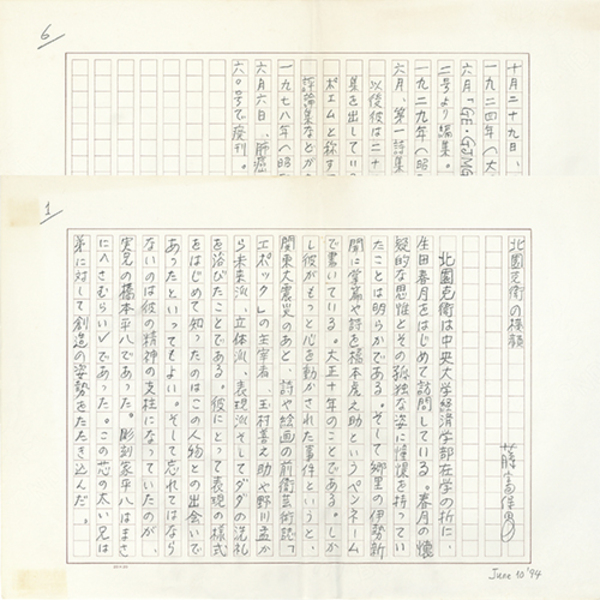 6
十月二十九日、
一九二四年(大
六月『GE・GJMG
二号より編集。
一九二九年(昭
六月、第一詩集
以後彼は二十
集を出してい
ポエムと称す
評論集などが
一九七八年(昭
六月六日、肺癌
六〇号で廃刊。
1
北園克衛の横顔
藤富保男
北園克衛は中央大学経済学部在学の折に、
生田春月をはじめて訪問している。春月の懐
疑的な思惟とその孤独な姿に憧憬を持ってい
たことは明らかである。そして郷里の伊勢新
聞に掌篇や詩を橋本虎之助というペンネーム
で書いている。大正十年のことである。しか
し彼がもっと心を動かされた事件というと、
関東大震災のあと、詩や絵画の前衛芸術誌「
エポック」の主宰者、玉村善之助や野川孟か
ら未来派、立体派、表現派そしてダダの洗礼
を浴びたことである。彼にとって表現の様式
をはじめて知ったのはこの人物との出会いで
あったといってもよい。そして忘れてはなら
ないのは彼の精神の支柱になっていたのが、
実兄の橋本平八であった。彫刻家平八はまさ
に〈さむらい〉であった。この芯の太い兄は
弟に対して創造の姿勢をたたき込んだ。
June 10 '94